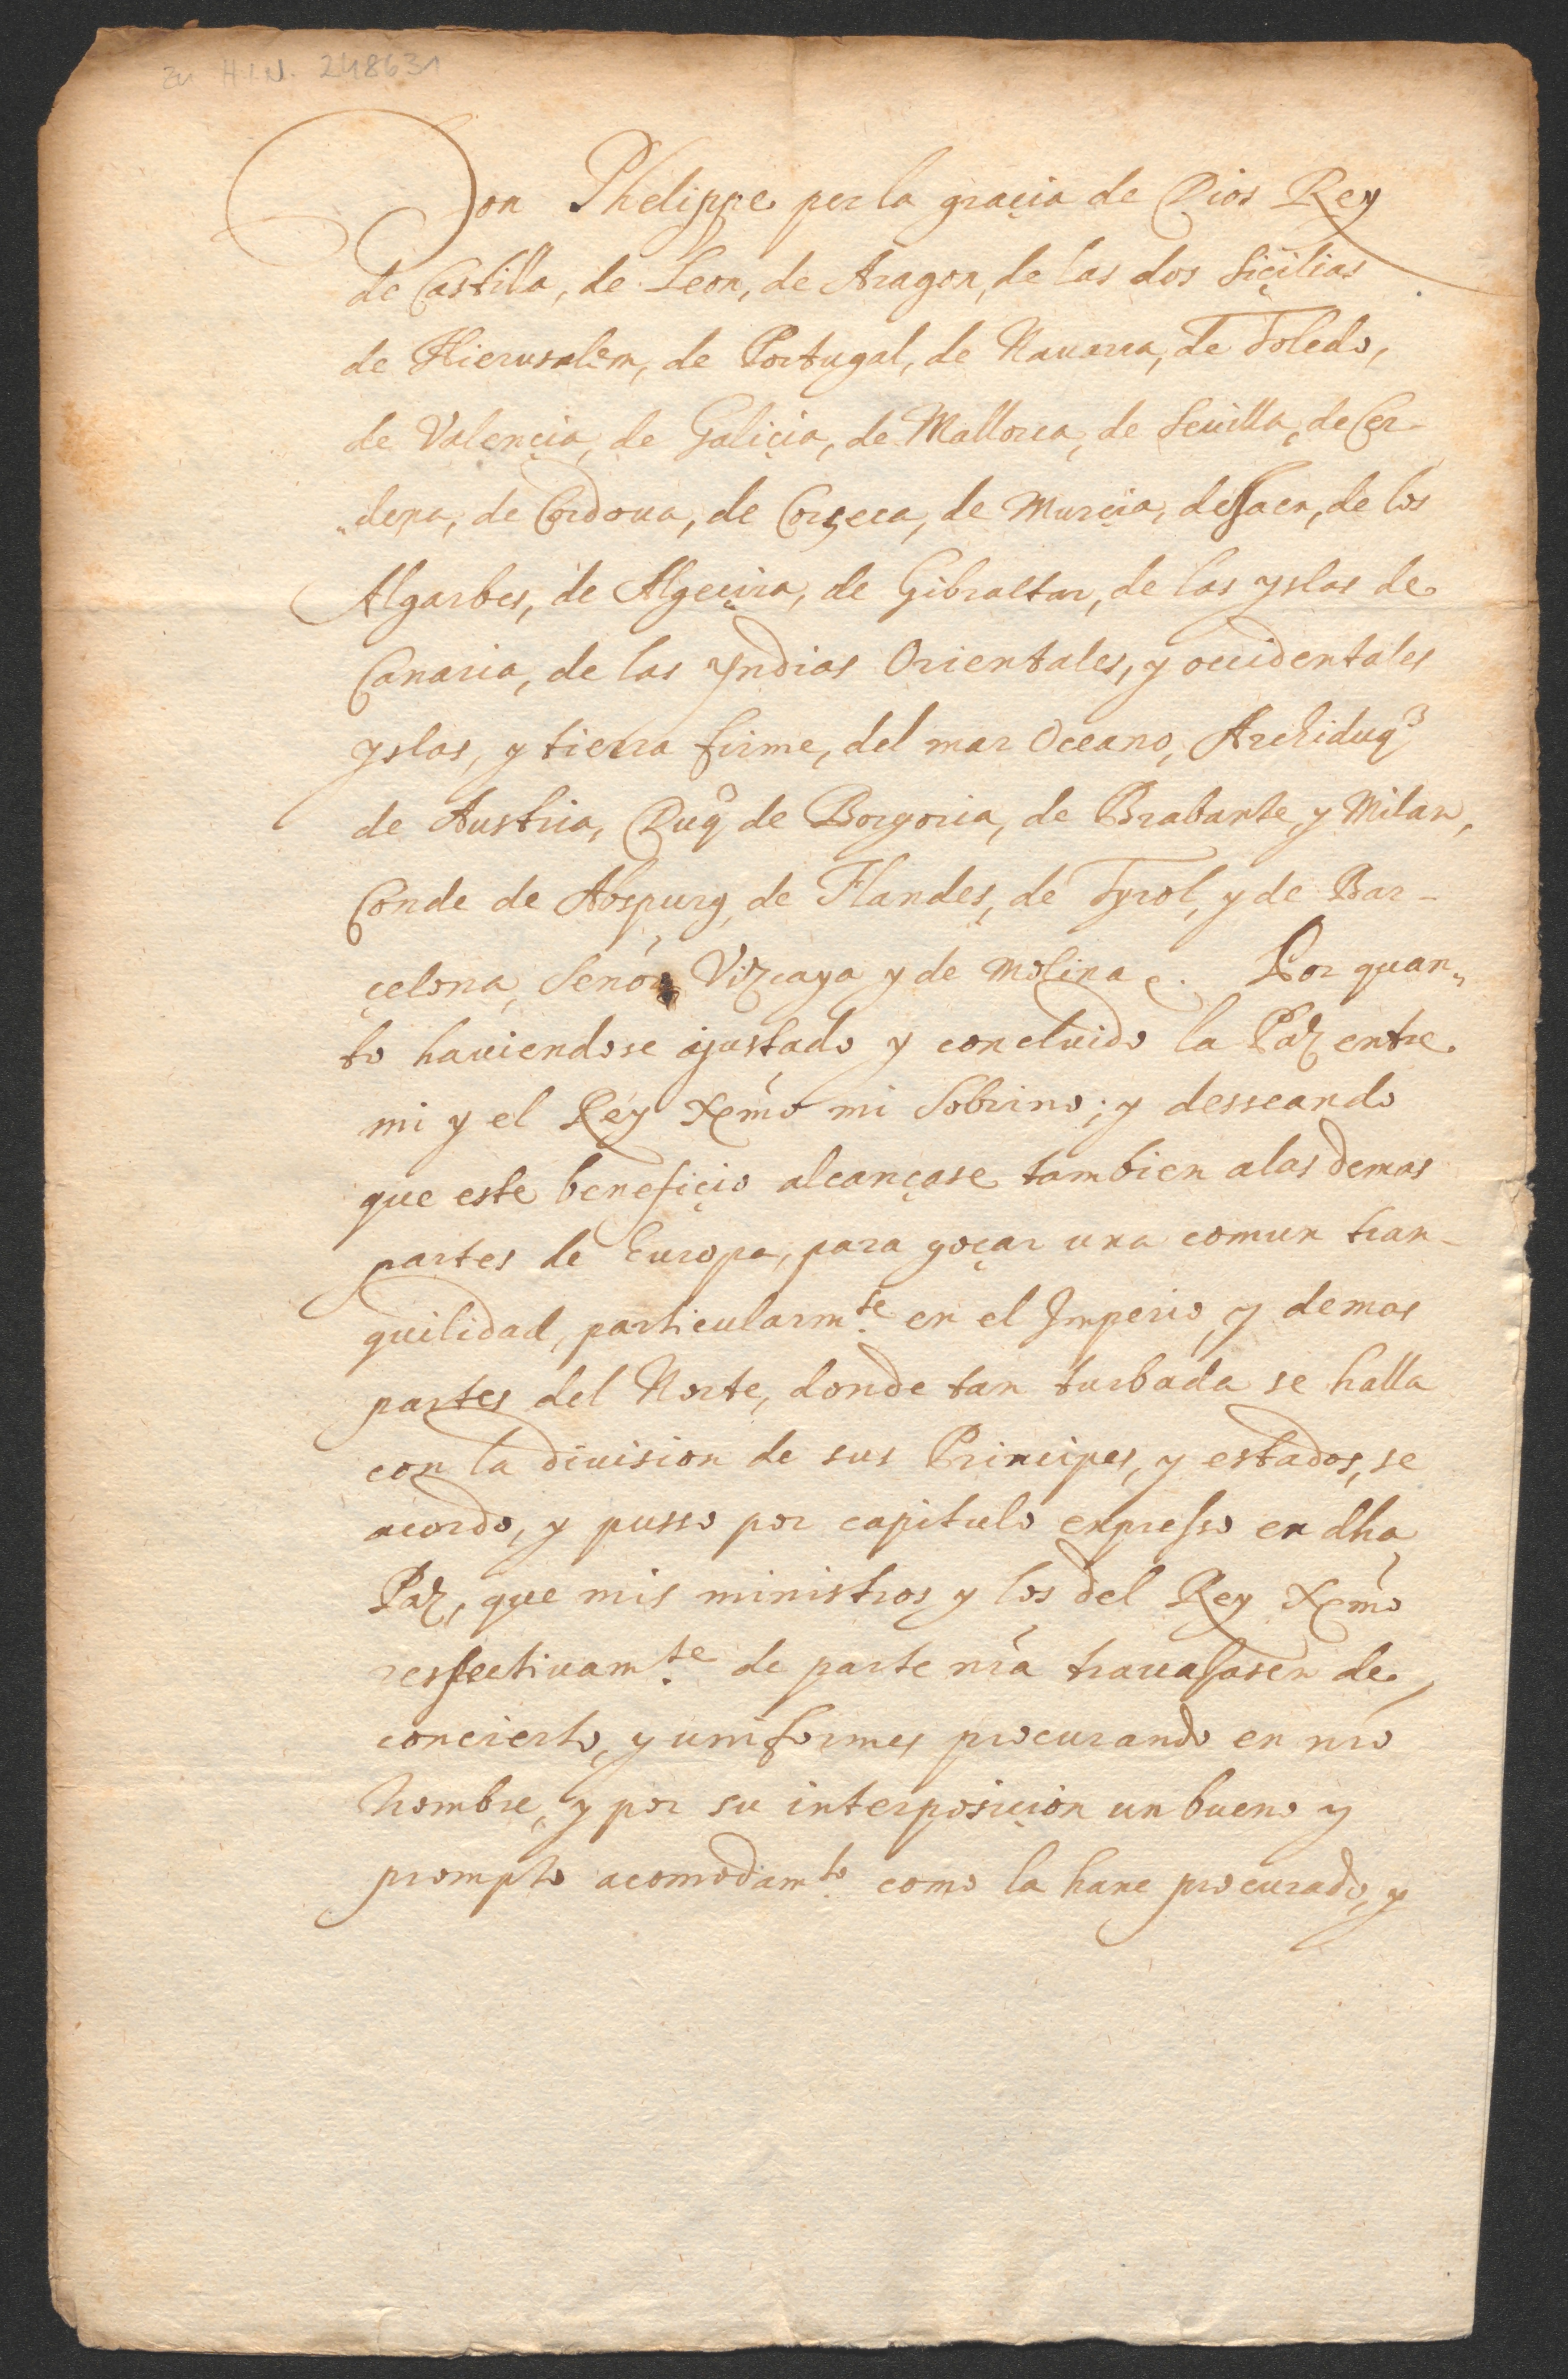 zu H.I.N. 248631
Don Phelippe por la graçia de Dios Rey
de Castilla, de Leon, de Aragon, de las dos Siçilias
de Hierusalem, de Portugal, de Nauarra, de Toledo,
de Valençia, de Galiçia, de Mallorca, de Seuilla, de Cer-
dena, de Cordoua, de Corçeca, de Murçia, de Jaen, de los
Algarbes, de Algeçira, de Gibraltar, de las yslas de
Canaria, de las Yndias Orientales, y occidentales
yslas, y tierra firme, del mar Oceano, Archiduqe
de Austria, Duqe de Borgoña, de Brabante, y Milan,
Conde de Abspurg, de Flandes, de Tyrol, y de Bar-
çelona, Señor Vizcaya y de Molina &. Por quan-
to hauiendose ajustado y concluido la Paz entre
mi y el Rey Xpmo mi Sobrino; y desseando
que este benefiçio alcançase tambien a las demas
partes de Europa, para goçar una comun tran-
quilidad, particularmte en el Imperio, y demas
partes del Norte, donde tan turbada se halla
con la diuision de sus Principes, y estados, se
acordo, y pusso por capitulo expresso en dha
Paz, que mis ministros y los del Rey Xpmo
respectiuamte de parte nra trauajasen de
concierto, y uniformes procurando en nro
nombre, y por su interposiçion un bueno y
prompto acomodamto como la hane procurado, y